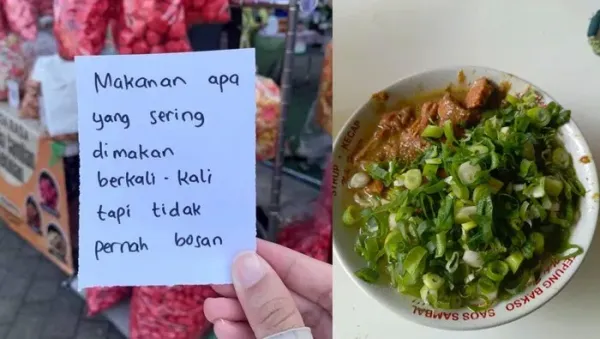 Makanan apa
yang sering
dimakan
berkali-kali
tapi tidak
pernah bosan
SIRUP • KECAP
SAOS SAMBAL
EPUNG BAKSO